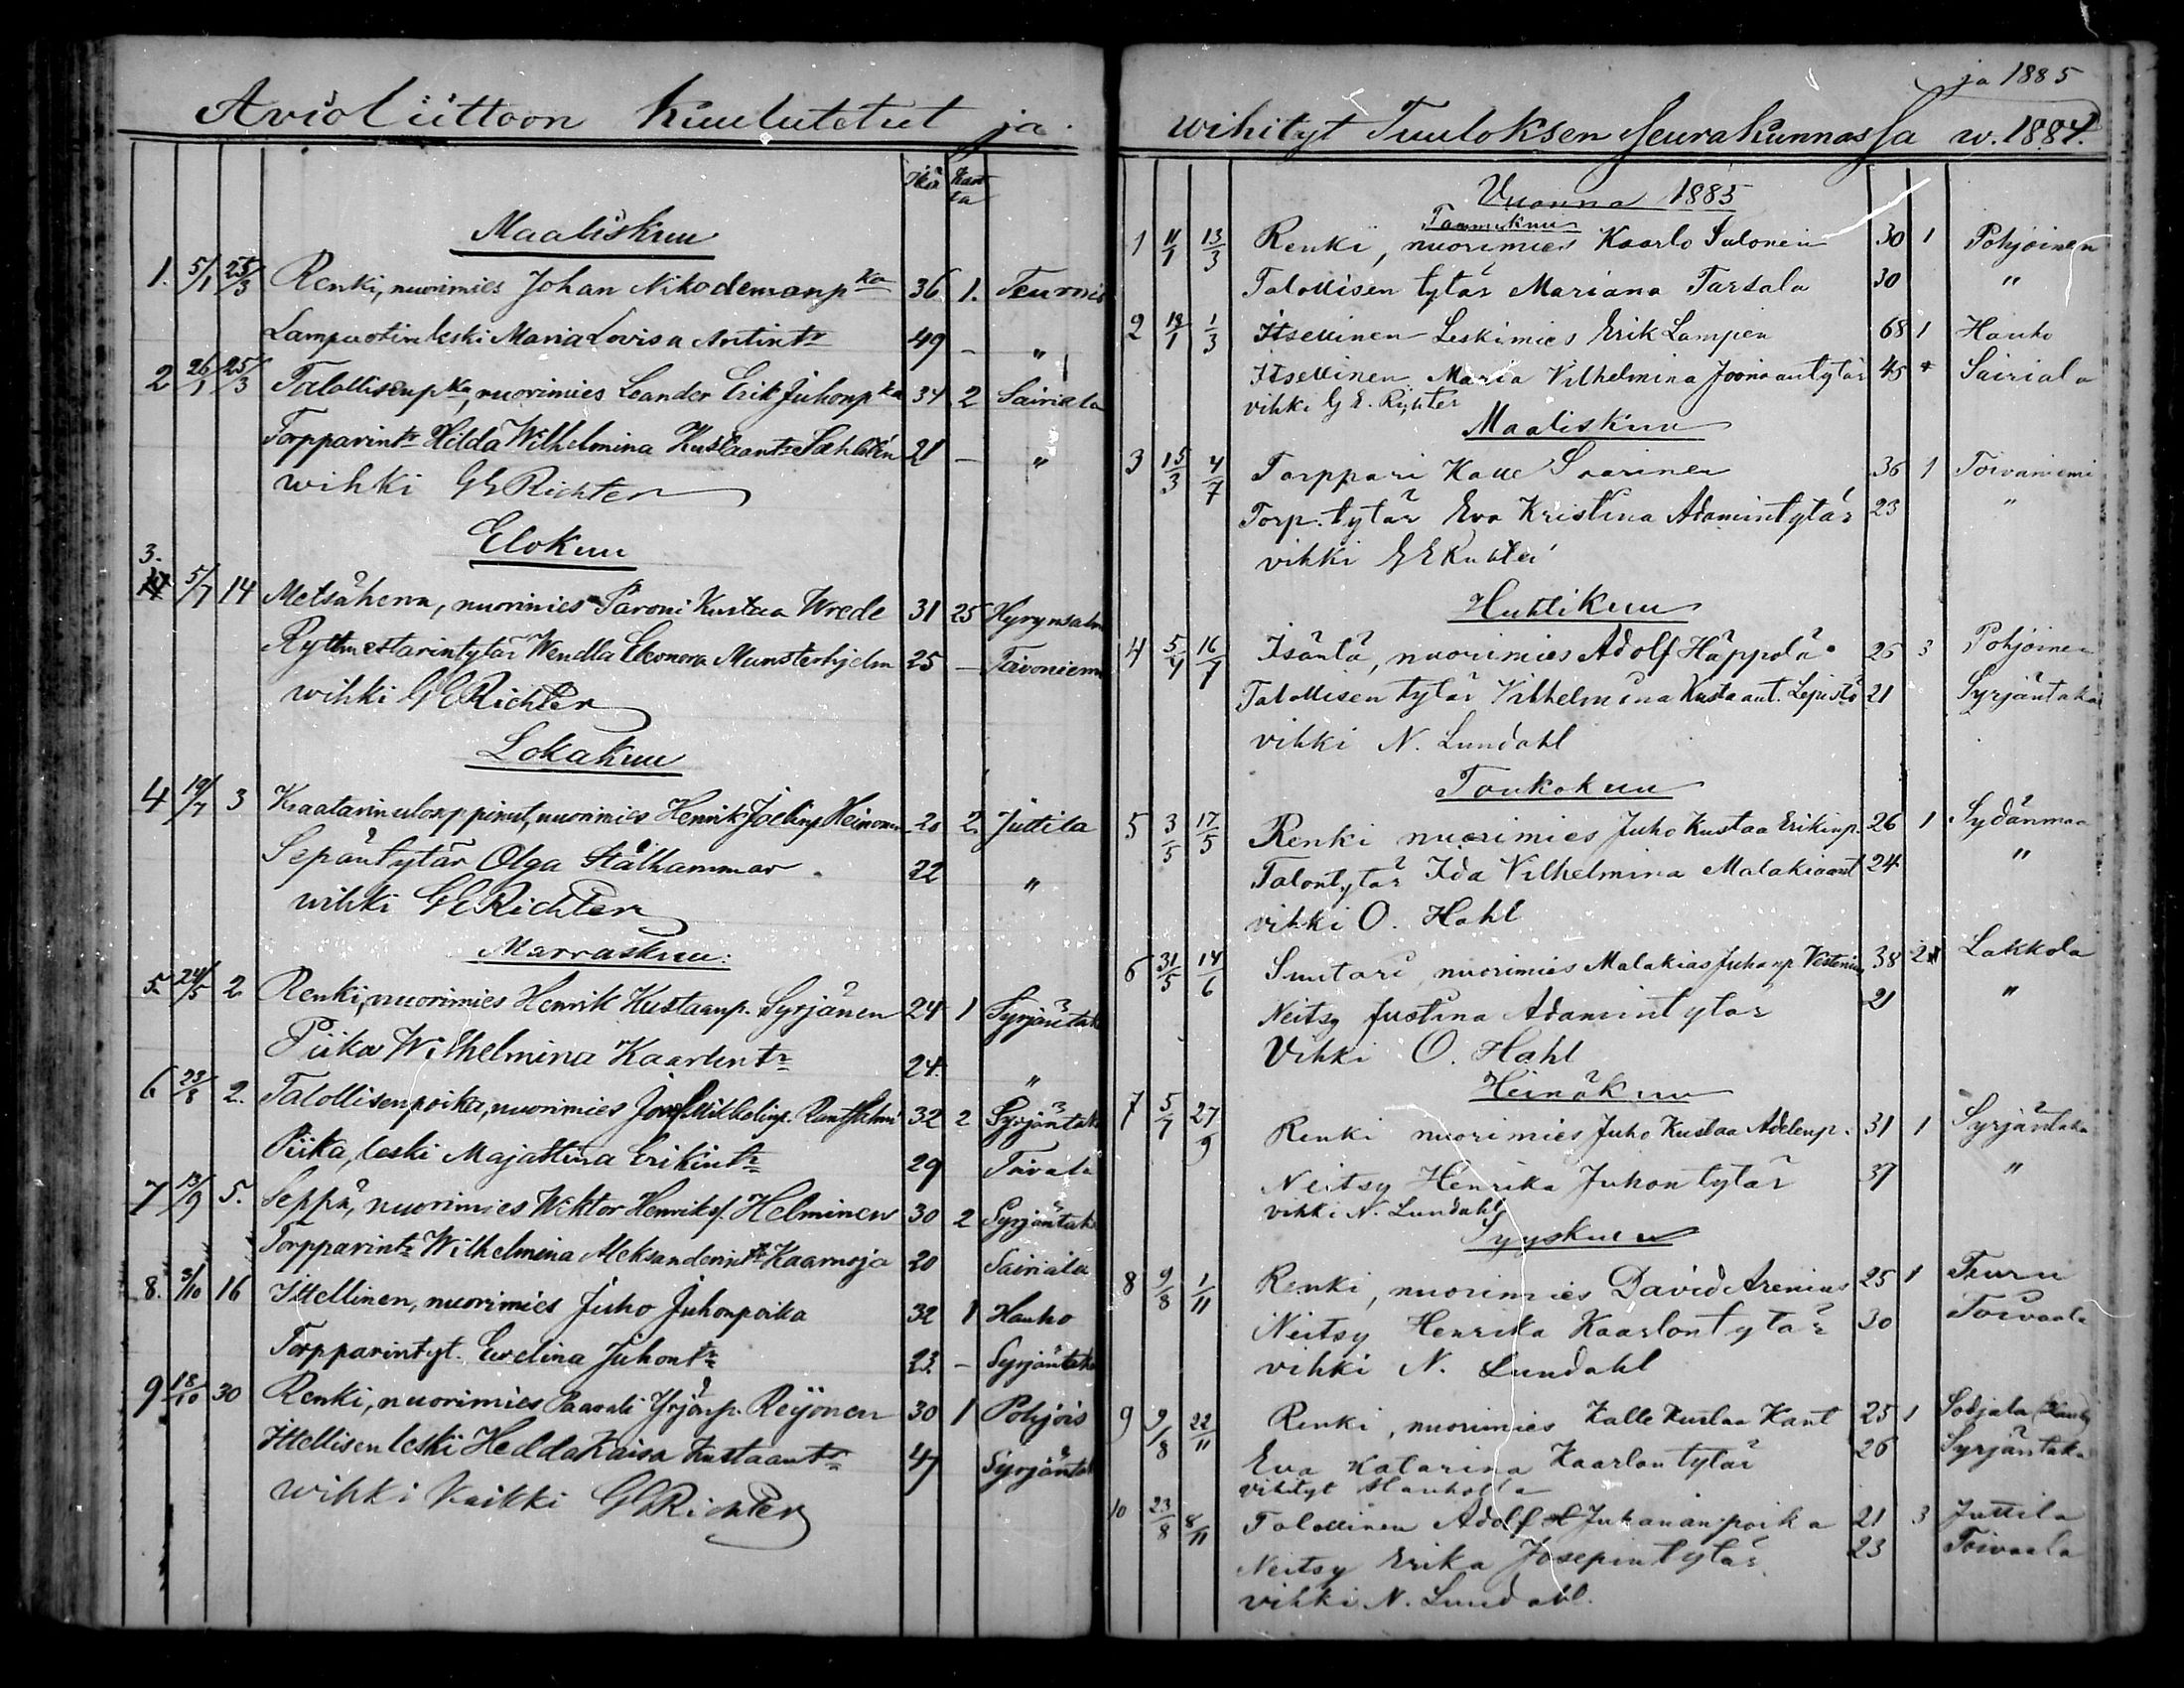 Avioliittoon Kuulutetut ja
Ikä Kuu
ta
Maaliskuu
1. 5/1 25/3 Renki, nuorimies Johan Nikodemanpka 36. 1. Teuro
Lampuotin leski Maria Lovisa Antintr 49 - "
2 26/1 25/3 Talollisenpka, nuorimies Leander Erik Juhonpka 34 2 Sairiala
Torpparintr Hilda Wilhelmina Kustaantr Sahlstén 21 - "
wihki GE Richter
Elokuu
3. 5/7 14 Metsäherra, nuorimies Paroni Kustaa Wrede 31 25 Hyrynsalm
Rytmestarintytär Wendla Eleonora Munsterhjelm 25 - Toivoniem
wihki GE Richter
Lokakuu
4 19/7 3 Kraatarin, nuorimies Henrik Joelinp. Heinonen 20 2. Juttila
Sepäntytär Olga Stålhammar. 22 "
wihki GE Richter
Marraskuu:
5. 24/5 2 Renki, nuorimies Henrik Kustaanp. Syrjänen 24 1 Syrjäntak
Piika Wilhelmina Kaarlentr 24. "
6 23/8 2. Talollisenpoika, nuorimies Mikkelinp. 32 2 Syrjäntak
Piika, leski Majastina Erikintr 29 Toivala
7 13/9 5. Seppä, nuorimies Wiktor Henrikp. Helminen 30 2 Syrjäntak
Torpparintr Wilhelmina Aleksanderintr Kaarnoja 20 Sairiala
8. 5/10 16 Itellinen, nuorimies Juho Juhonpoika 32 1 Hauho
Torpparintyt. Ewelina Juhontr 23 - Syrjäntak
9 18/10 30 Renki, nuorimies Paavali Yrjönp. Reijonen 30 1 Pohjois
Itellisen leski Hedda Kaisa Kustaantr 47 Syrjäntak
wihki Kaikki GE Richter
ja 1885
wihityt Tuuloksen Seurakunnassa w. 1884.
Vuonna 1885
Tammikuu
1 11/1 13/3 Renki, nuorimies Kaarlo Salonen 30 1 Pohjoinen
Talollisen tytär Mariana Tarsala 30 "
2 18/1 1/3 Itsellinen Leskimies Erik Lampen 68 1 Hauho
Itsellinen Maria Vilhelmina Joonaantytär 45 Sairiala
vihki G E. Richter
Maaliskuu
3 15/3 4/7 Torppari Kalle Saarinen 36 1 Toivaniemi
Torp. tytär Eva Kristina Adamintytär 23 "
vihki G E Richter
Huhtikuu
4 5/4 16/7 Isäntä, nuorimies Adolf Häppölä 26 3 Pohjoinen
Talollisen tytär Vilhelmina Kustaant. Lepistö 21 Syrjäntaka
vihki N. Lundahl
Toukokuu
5 3/5 17/5 Renki nuorimies Juho Kustaa Erikinp. 26 1 Sydänmaa
Talontytär Ida Vilhelmina Malakiaant 24 "
vihki O. Hahl
6 31/5 14/6 Suutari nuorimies Malakias Juhanp Vestenius 38 2 Lakkola
Neitsy Justina Adamintytär 21 "
Vihki O. Hahl
Heinäkuu
7 5/7 27/9 Renki nuorimies Juho Kustaa Adelenp. 31 1 Syrjäntaka
Neitsy Henrika Juhontytär 37 "
vihki N. Lundahl
Syyskuu
8 9/8 1/11 Renki, nuorimies David Arenius 25 1 Teuro
Neitsy Henrika Kaarlontytär 30 Toivaala
vihki N. Lundahl
9 9/8 22/11 Renki, nuorimies Kalle Kustaa Kant 25 1 Sotjala (Hauho)
Eva Katarina Kaarlontytär 26 Syrjäntaka
vihityt Hauholla
10 23/8 8/11 Talollinen Adolf Juhananpoika 21 3 Juttila
Neitsy Erika Josepintytär 23 Toivaala
vihki N. Lundahl.